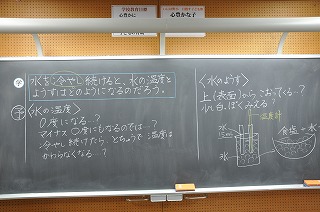 学校教育目標
心豊かに
心豊かな子
学
水を冷やし続けると、水の温度と
ようすはどのようになるのだろう。
予
〈水の温度〉
0度になる…?
マイナス0度にもなるのでは…?
冷やし続けたら、とちゅうで温度は
かわらなくなる…?
〈水のようす〉
上(表面)からこおってくる…?
少し白っぽくみえる?
温度計
水
水
食塩
水